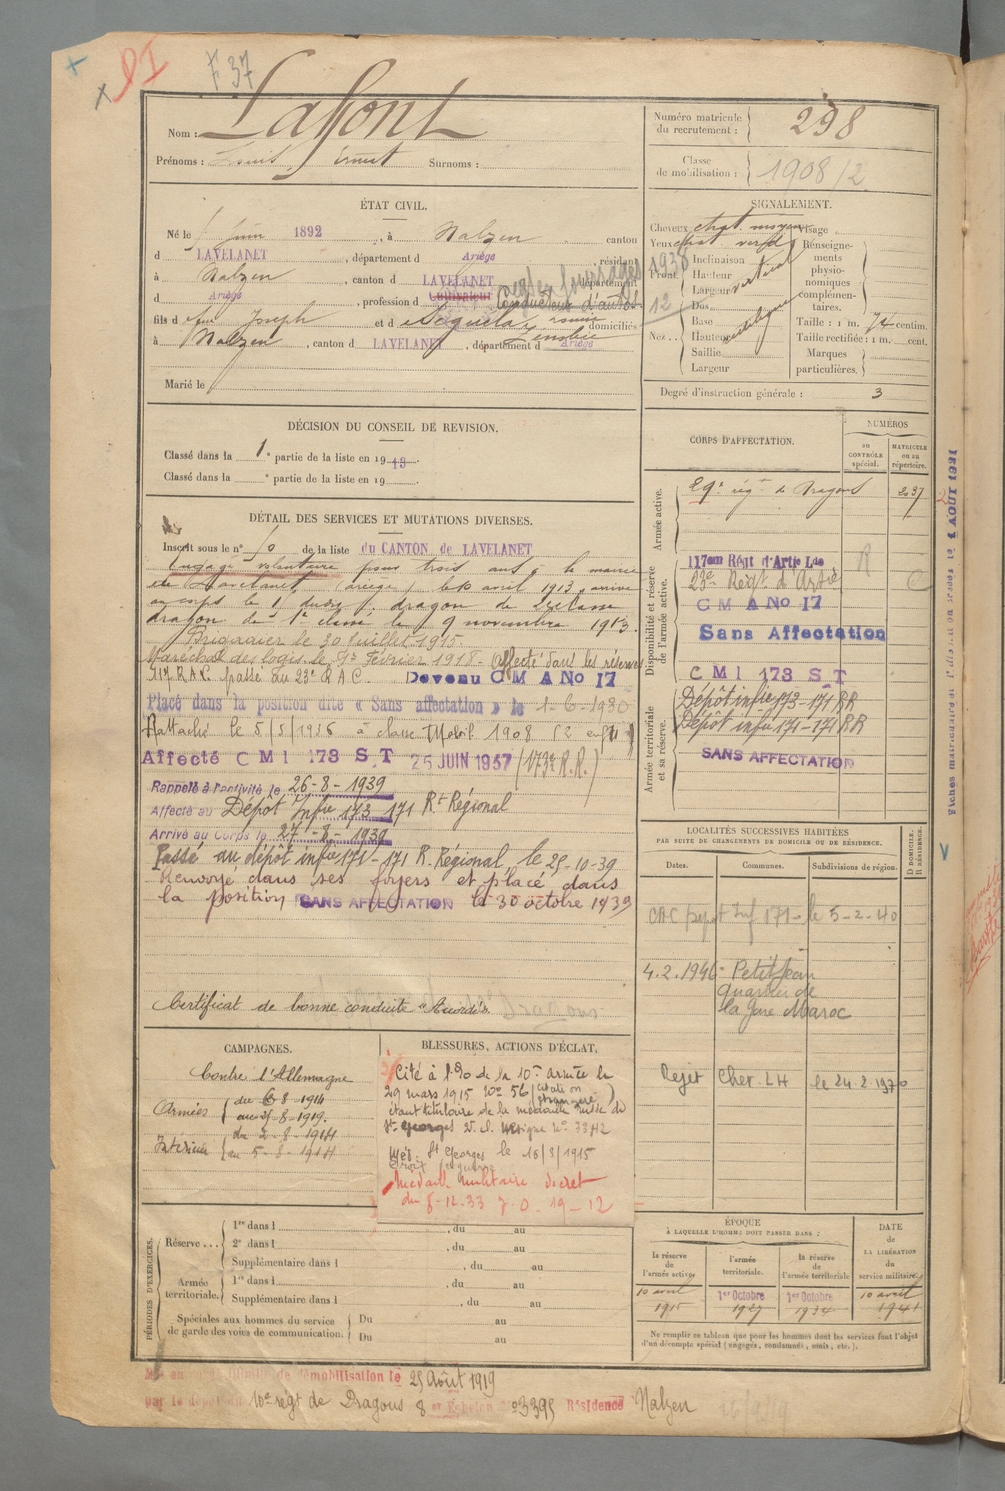 F 37
Nom : Laffont
Prénoms : Louis Ernest Surnoms :
Numéro matricule du recrutement : 298
Classe de mobilisation : 1908/2
ÉTAT CIVIL.
Né le 1 juin 1892, à Nalzen canton
d LAVELANET, département d Ariège, résidant
à Nalzen, canton d LAVELANET département
d Ariège, profession d Cultivateur Conducteur d'autos
fils d feu Joseph et d domiciliés
à Nalzen, canton d LAVELANET, département d Ariège
Marié le
SIGNALEMENT.
Cheveux chat. moyen Visage
Yeux
Front Inclinaison vertical
Hauteur
Largeur
Nez Dos
Base
Hauteur
Saillie
Largeur
Renseignements physionomiques complémentaires.
Taille : 1 m. 74 centim.
Taille rectifiée : 1 m. cent.
Marques particulières.
Degré d'instruction générale : 3
DÉCISION DU CONSEIL DE REVISION.
Classé dans la 1e partie de la liste en 1913.
Classé dans la e partie de la liste en 19
CORPS D'AFFECTATION.
NUMÉROS
au CONTRÔLE spécial.
MATRICULE ou au répertoire.
Armée active.
29e régt de Dragons 237
Disponibilité et réserve de l'armée active.
117eme Régt d'Artie Lde
23e Régt d'Artie
C M A No 17
Sans Affectation
C M I 173 S T
Armée territoriale et sa réserve.
Dépôt infie 173-171 RR
Dépôt infie 171-171 RR
SANS AFFECTATION
DÉTAIL DES SERVICES ET MUTATIONS DIVERSES.
Inscrit sous le n° 10 de la liste du CANTON de LAVELANET
Engagé volontaire pour trois ans à la mairie
de Lavelanet, ariège, le 10 avril 1913, arrivé
au corps le dudit, dragon de 2e classe
dragon de 1e classe le 9 novembre 1913.
Brigadier le 30 Juillet 1915.
Maréchal des logis le 1er Février 1918. Affecté dans les réserves
117 R.A.C. passé au 23e R.A.C. Devenu C M A No 17
Placé dans la position dite « Sans affectation » le 1-6-1930
Rattaché le 5/5/1936 à classe Mobil. 1908 (2 enfts)
Affecté C M I 173 S T 25 JUIN 1937 (173e R.R.)
Rappelé à l'activité le 26-8-1939
Affecté au Dépôt Infie 173 171 Rt Régional
Arrivé au Corps le 27-8-1939
Passé au dépôt infie 171-171 R. Régional le 25-10-39
Renvoyé dans ses foyers et placé dans
la position SANS AFFECTATION le 30 octobre 1939
Certificat de bonne conduite "Accordé"
LOCALITÉS SUCCESSIVES HABITÉES
PAR SUITE DE CHANGEMENTS DE DOMICILE OU DE RÉSIDENCE.
Dates. Communes. Subdivisions de région. D DOMICILE. R RÉSIDENCE.
Inf 171 le 5-2-40
4.2.1946 Petit Jean
quartier de
la Gare Maroc
Rejet Chev. LH le 24.2.1970
CAMPAGNES.
Contre l'Allemagne
Armées du 6-8-1914
au 25-8-1919.
Intérieur du 2-8-1914
au 5-8-1914
BLESSURES, ACTIONS D'ÉCLAT,
Cité à l'o/o de la 10e armée le
29 mars 1915 No 56 (citation étrangère)
étant titulaire de la médaille russe de
St Georges
Méd. St Georges le 16/8/1915
Croix
Médaille Militaire décret
du 8-12-33 J.O. 19-12
PÉRIODES D'EXERCICES.
Réserve...
1re dans l , du au
2e dans l , du au
Supplémentaire dans l , du au
Armée territoriale.
1re dans l , du au
Supplémentaire dans l , du au
Spéciales aux hommes du service de garde des voies de communication.
Du au
Du au
ÉPOQUE
À LAQUELLE L'HOMME DOIT PASSER DANS :
la réserve de l'armée active.
l'armée territoriale.
la réserve de l'armée territoriale
DATE de LA LIBÉRATION du service militaire.
10 avril 1915
1er Octobre 1927
1er Octobre 1934
10 avril 1941
Ne remplir ce tableau que pour les hommes dont les services font l'objet
d'un décompte spécial (engagés, condamnés, omis, etc.).
démobilisation le 25 Août 1919
par le dépôt du 10e régt de Dragons 8 er Echelon No 3395 Résidence Nalzen